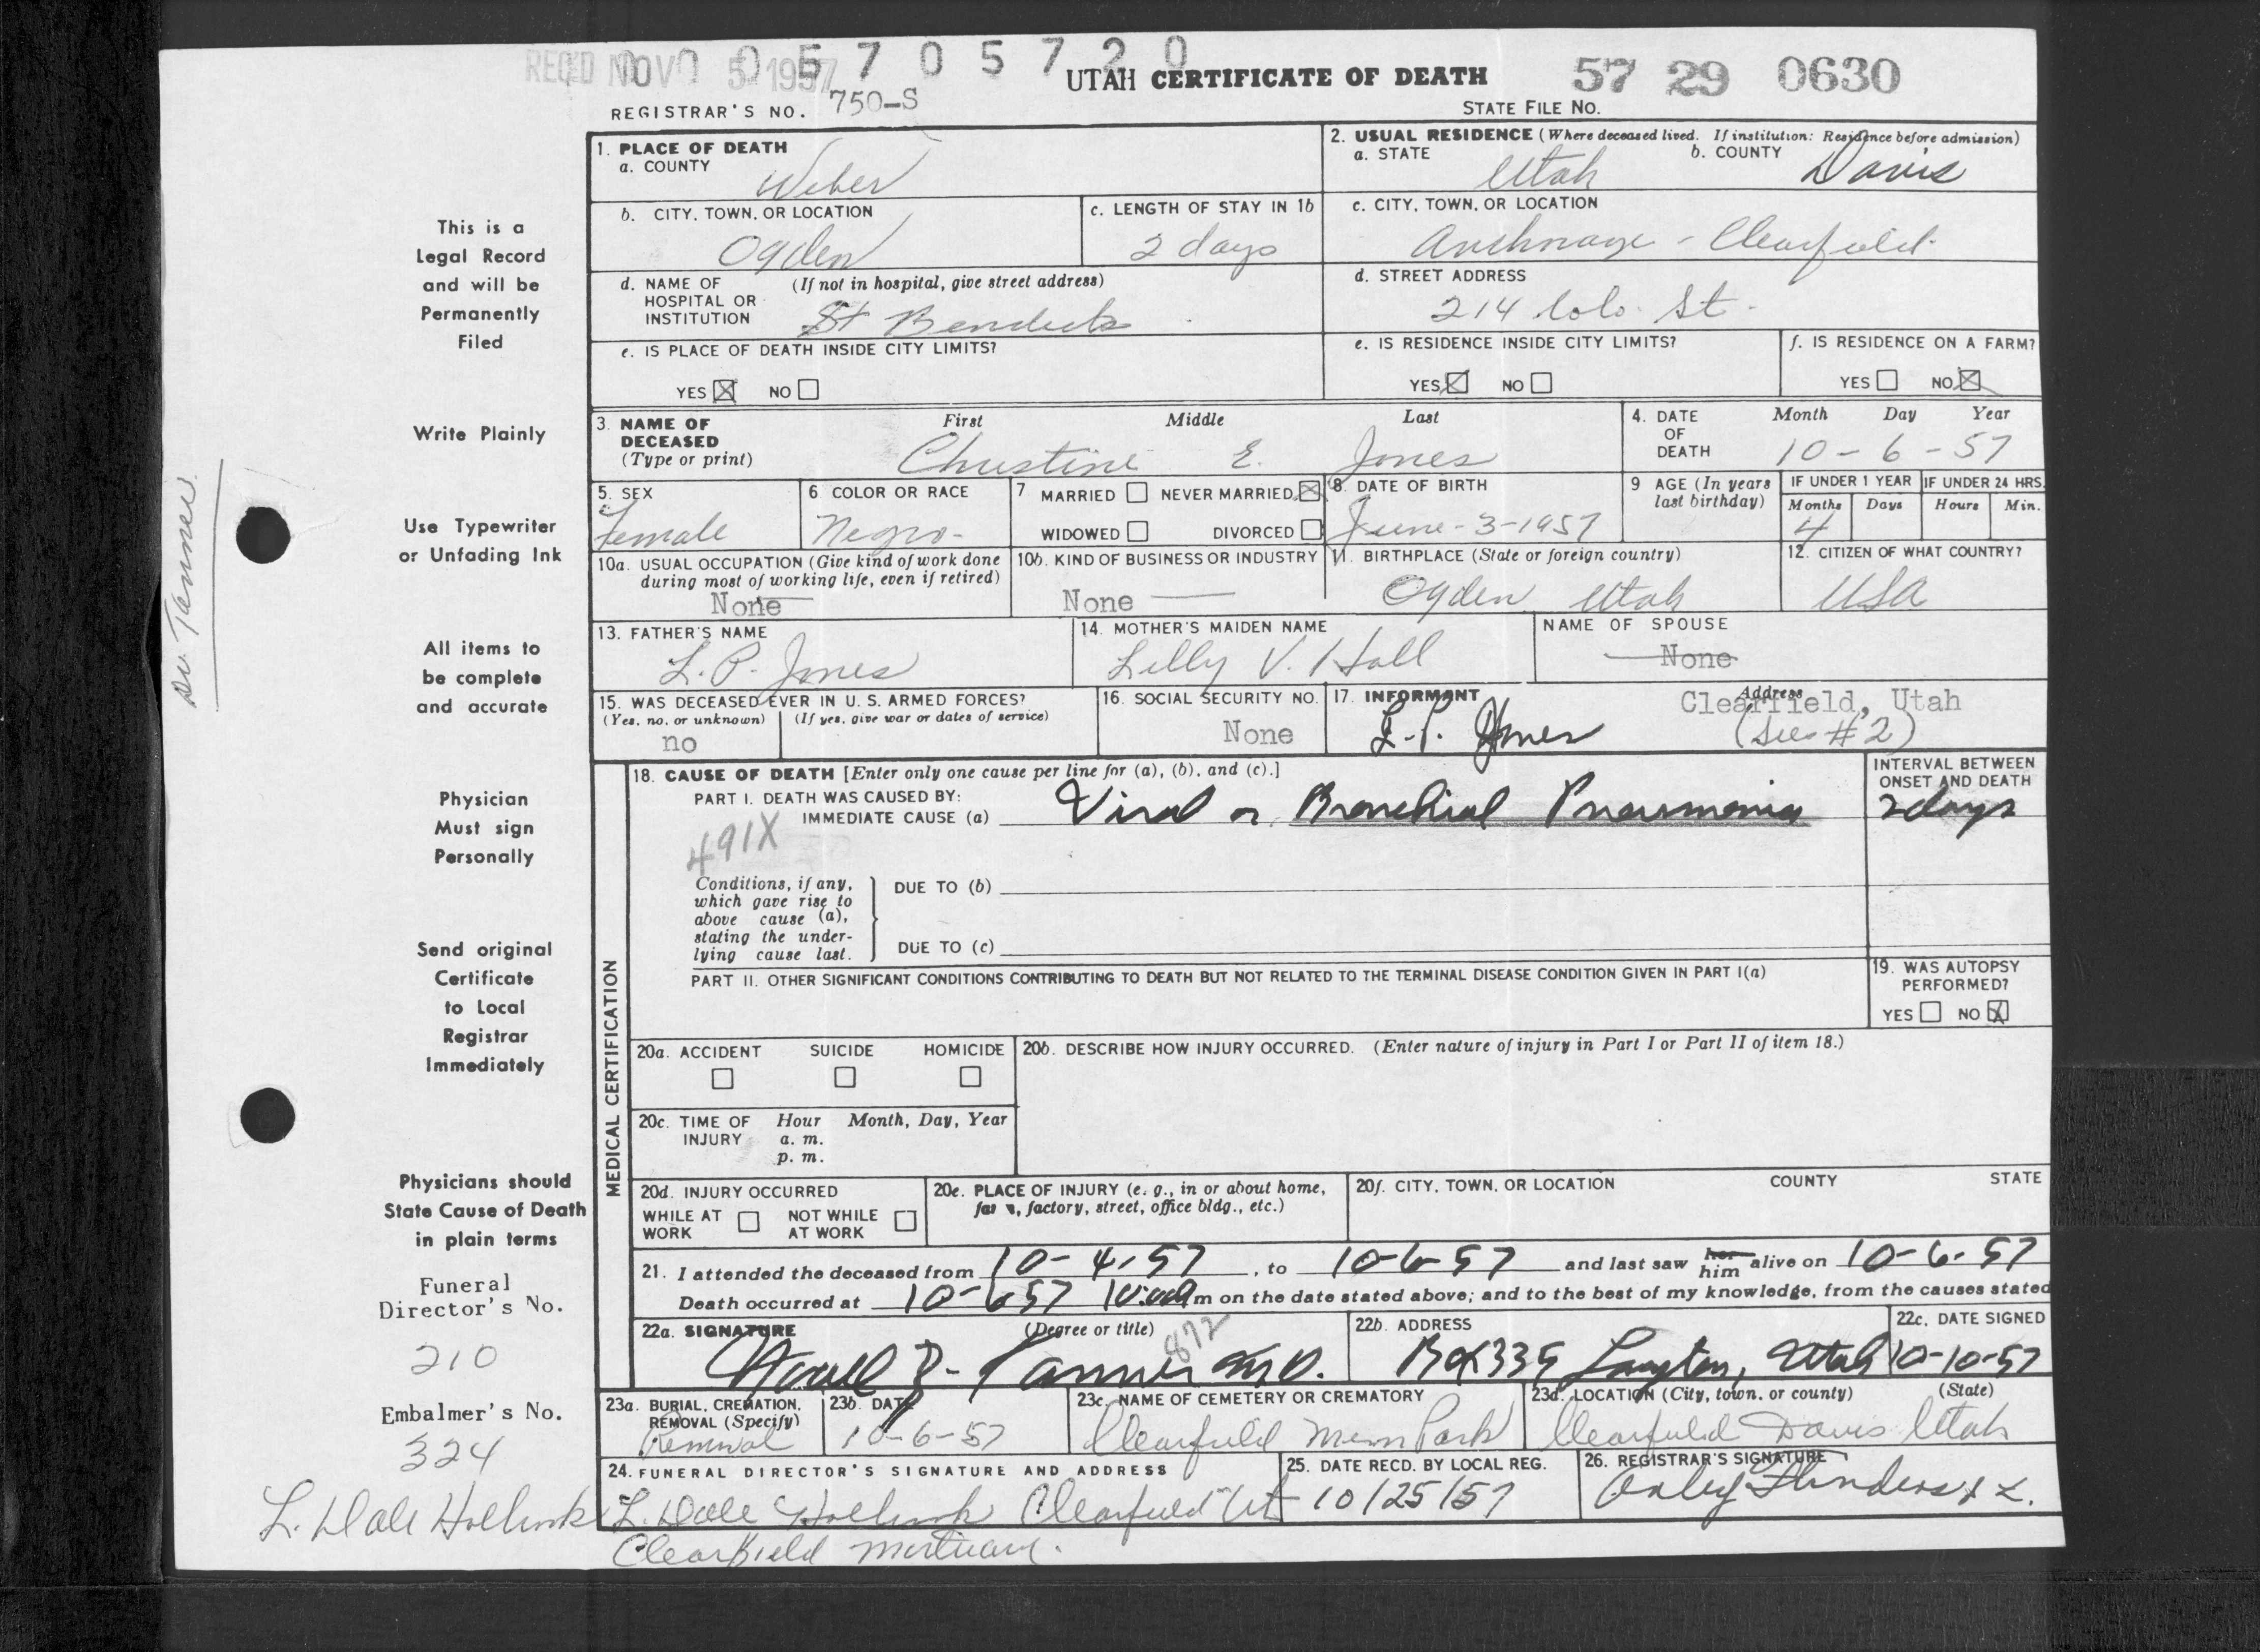 REC'D NOV 5 1957
0 5 7 0 5 7 2 0
UTAH CERTIFICATE OF DEATH
57 29 0630
REGISTRAR'S NO. 750-S
STATE FILE NO.
1. PLACE OF DEATH
a. COUNTY
Weber
2. USUAL RESIDENCE (Where deceased lived. If institution: Residence before admission)
a. STATE Utah b. COUNTY Davis
b. CITY, TOWN, OR LOCATION
Ogden
c. LENGTH OF STAY IN 1b
2 days
c. CITY, TOWN, OR LOCATION
Anchorage - Clearfield
d. NAME OF (If not in hospital, give street address)
HOSPITAL OR
INSTITUTION St Benedicts
d. STREET ADDRESS
214 Colo. St.
e. IS PLACE OF DEATH INSIDE CITY LIMITS?
YES ☒ NO ☐
e. IS RESIDENCE INSIDE CITY LIMITS?
YES ☒ NO ☐
f. IS RESIDENCE ON A FARM?
YES ☐ NO ☒
3. NAME OF DECEASED (Type or print)
First Middle Last
Christine E. Jones
4. DATE OF DEATH
Month Day Year
10 - 6 - 57
5. SEX
Female
6 COLOR OR RACE
Negro
7 MARRIED ☐ NEVER MARRIED ☒
WIDOWED ☐ DIVORCED ☐
8. DATE OF BIRTH
June-3-1957
9 AGE (In years last birthday)
IF UNDER 1 YEAR
Months Days
4
IF UNDER 24 HRS.
Hours Min.
10a. USUAL OCCUPATION (Give kind of work done
during most of working life, even if retired)
None
10b. KIND OF BUSINESS OR INDUSTRY
None
11. BIRTHPLACE (State or foreign country)
Ogden Utah
12. CITIZEN OF WHAT COUNTRY?
USA
13. FATHER'S NAME
L. P. Jones
14. MOTHER'S MAIDEN NAME
Lilly V. Hall
NAME OF SPOUSE
None
15. WAS DECEASED EVER IN U. S. ARMED FORCES?
(Yes, no, or unknown) (If yes, give war or dates of service)
no
16. SOCIAL SECURITY NO.
None
17. INFORMANT
L. P. Jones
Address
Clearfield, Utah
(See #2)
MEDICAL CERTIFICATION
18. CAUSE OF DEATH [Enter only one cause per line for (a), (b), and (c).]
PART I. DEATH WAS CAUSED BY:
IMMEDIATE CAUSE (a) Viral or Bronchial Pneumonia
INTERVAL BETWEEN
ONSET AND DEATH
2 days
491X
Conditions, if any,
which gave rise to
above cause (a),
stating the under-
lying cause last.
DUE TO (b)
DUE TO (c)
PART II. OTHER SIGNIFICANT CONDITIONS CONTRIBUTING TO DEATH BUT NOT RELATED TO THE TERMINAL DISEASE CONDITION GIVEN IN PART I(a)
19. WAS AUTOPSY
PERFORMED?
YES ☐ NO ☒
20a. ACCIDENT SUICIDE HOMICIDE
☐ ☐ ☐
20b. DESCRIBE HOW INJURY OCCURRED. (Enter nature of injury in Part I or Part II of item 18.)
20c. TIME OF INJURY
Hour Month, Day, Year
a. m.
p. m.
20d. INJURY OCCURRED
WHILE AT WORK ☐ NOT WHILE AT WORK ☐
20e. PLACE OF INJURY (e. g., in or about home,
farm, factory, street, office bldg., etc.)
20f. CITY, TOWN, OR LOCATION COUNTY STATE
21. I attended the deceased from 10-4-57, to 10-6-57 and last saw her him alive on 10-6-57
Death occurred at 10-6-57 m on the date stated above; and to the best of my knowledge, from the causes stated
22a. SIGNATURE (Degree or title)
Tanner M.D.
872
22b. ADDRESS
Box 335 Layton, Utah
22c. DATE SIGNED
10-10-57
23a. BURIAL, CREMATION,
REMOVAL (Specify)
Removal
23b. DATE
10-6-57
23c. NAME OF CEMETERY OR CREMATORY
Clearfield Mem Park
23d. LOCATION (City, town, or county) (State)
Clearfield Davis Utah
24. FUNERAL DIRECTOR'S SIGNATURE AND ADDRESS
L. Dale Clearfield Ut
Clearfield Mortuary.
25. DATE RECD. BY LOCAL REG.
10/25/57
26. REGISTRAR'S SIGNATURE
Flinders
This is a
Legal Record
and will be
Permanently
Filed
Write Plainly
Use Typewriter
or Unfading Ink
All items to
be complete
and accurate
Physician
Must sign
Personally
Send original
Certificate
to Local
Registrar
Immediately
Physicians should
State Cause of Death
in plain terms
Funeral
Director's No.
210
Embalmer's No.
324
L. Dale
Dr. Tanner